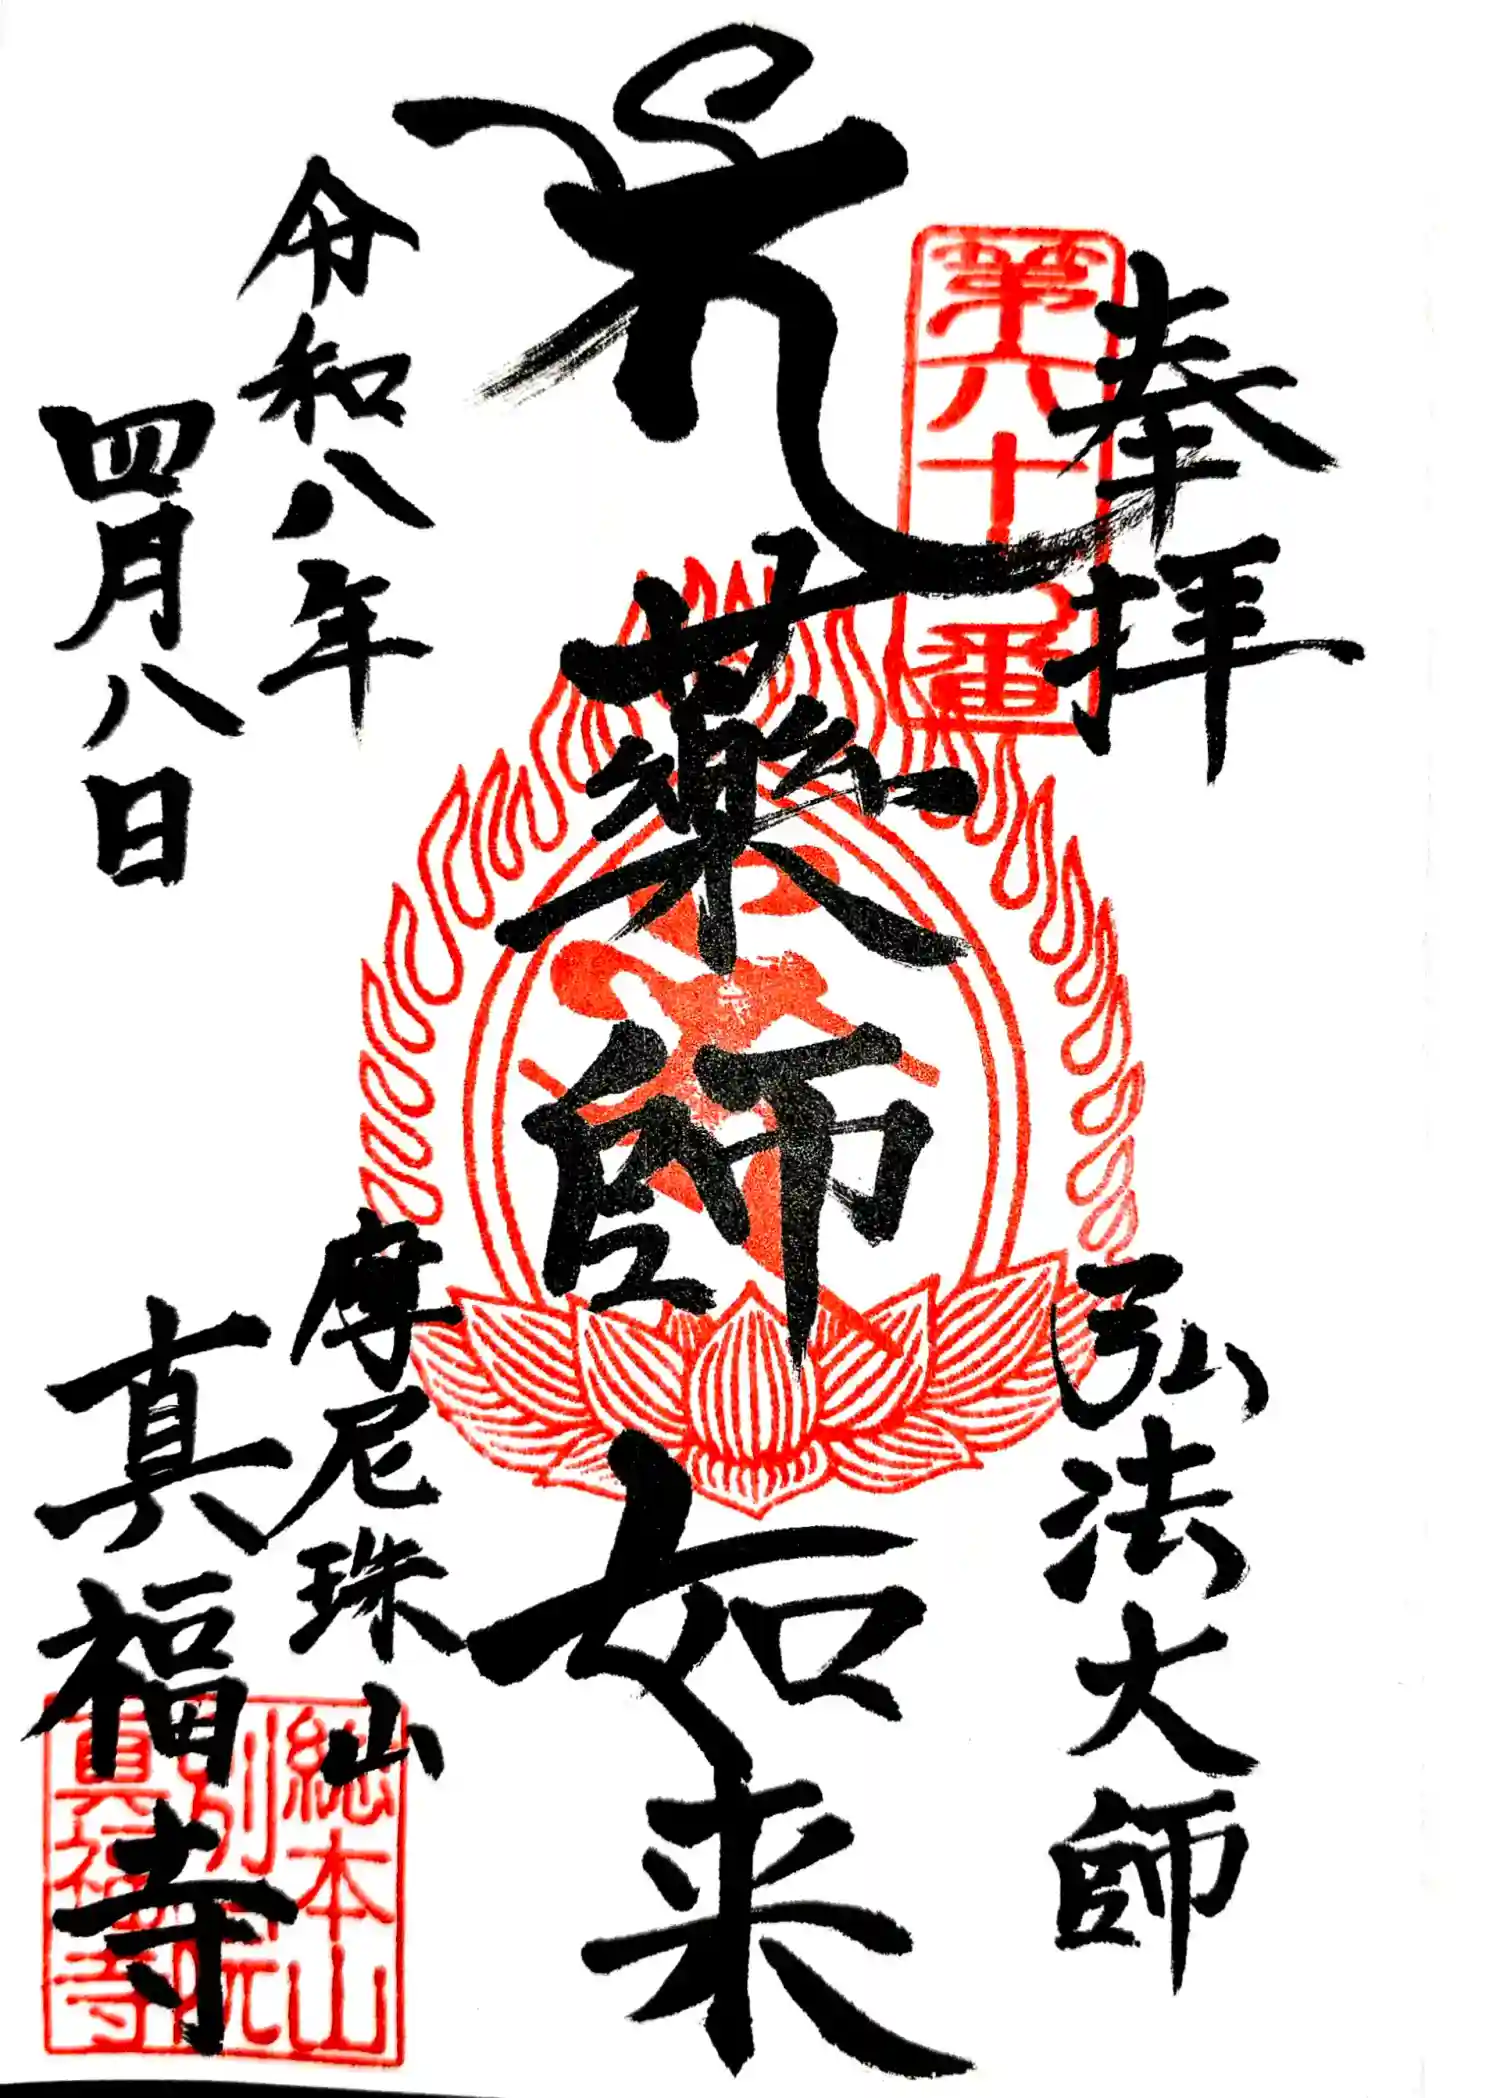 奉拝
弘法大師
第六十七番
藥師如来
令和八年
四月八日
摩尼珠山
真福寺
総本山
別院
真福寺